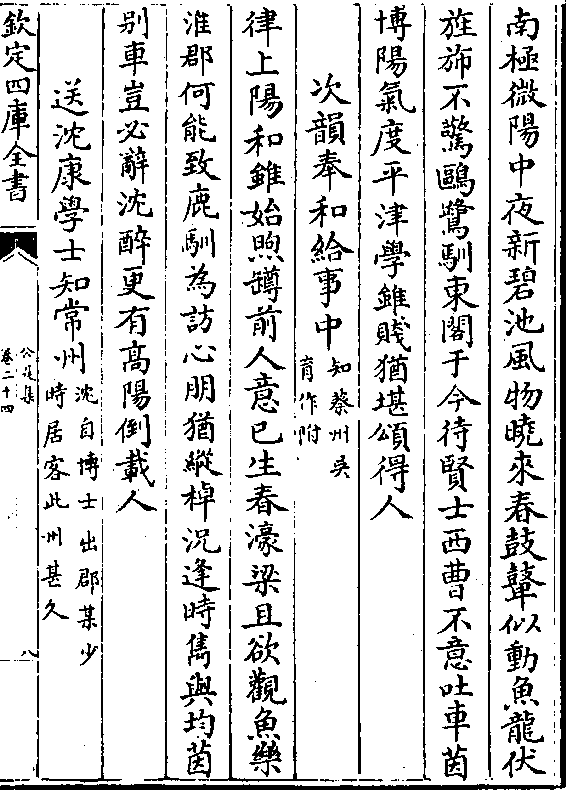 南極微陽中夜新碧池風物曉來春鼓鼙似動魚龍伏
旌斾不驚鷗鷺馴東閣于今待賢士西曹不意吐車茵
博陽氣度平津學雖賤猶堪頌得人
次韻奉和給事中知蔡州吳育作附
律上陽和雖始煦罇前人意已生春濠梁且欲觀魚樂
淮郡何能致鹿馴為訪心朋猶縱棹況逢時雋與均茵
别車豈必辭沈醉更有高陽倒載人
送沈康學士知常州沈自博士出郡某少時居客此州甚久
欽定四庫全書
公是集
卷二十四
八